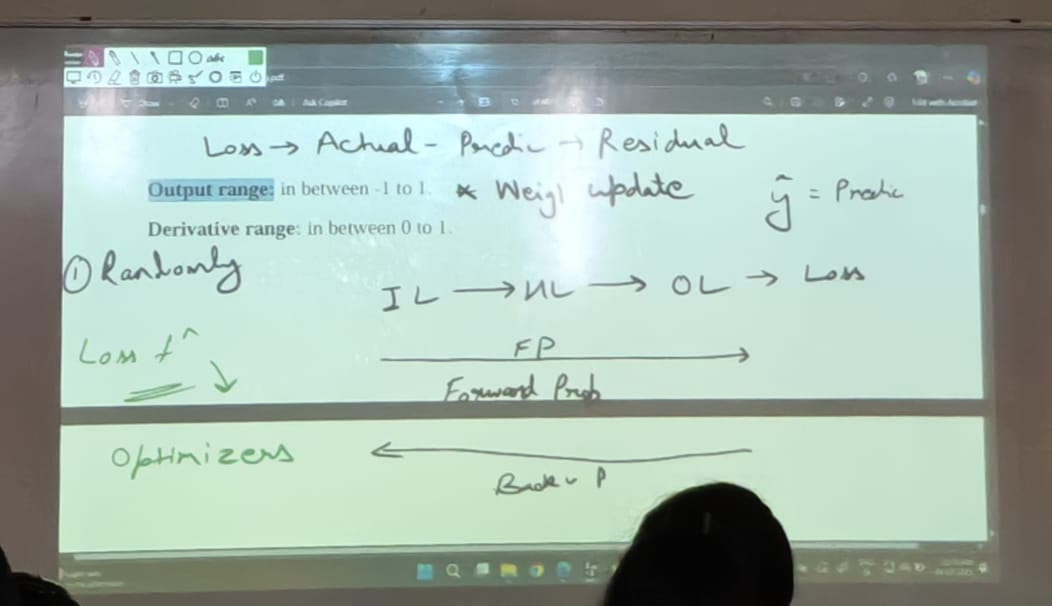 abc
.pdf
Draw
Ask Copilot
Edit with Acrobat
Loss → Actual - Predic → Residual
Output range: in between -1 to 1. * Weigl update ŷ = Predic
Derivative range: in between 0 to 1.
① Randomly
IL → HL → OL → Loss
Loss fⁿ ↓
FP
Forward Prob
Optimizers
Back P